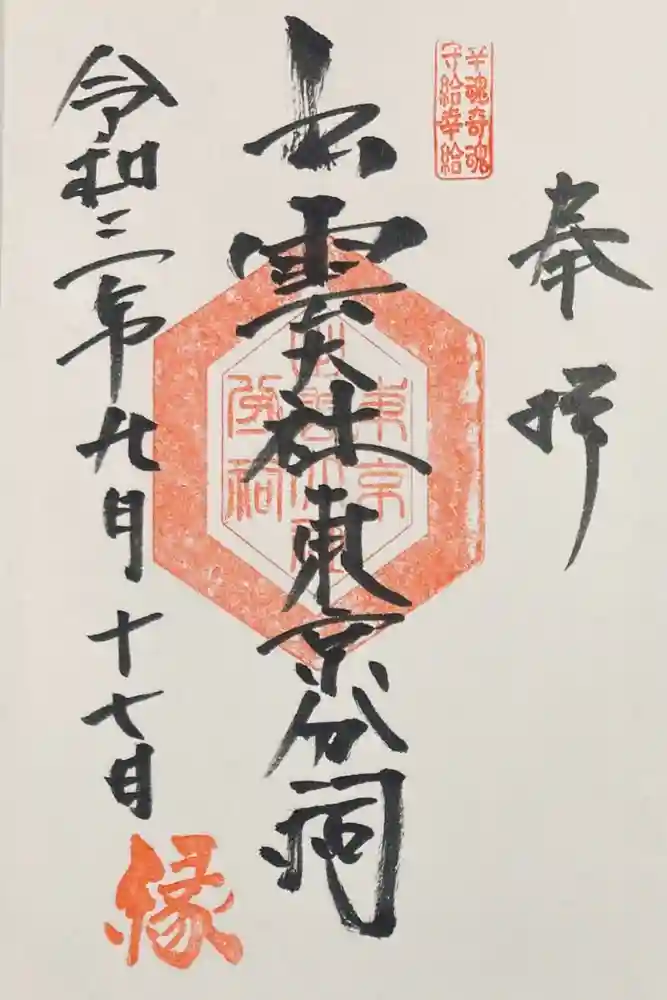 奉拝
幸魂奇魂
守給幸給
出雲大社東京分祠
令和三年九月十七日
縁